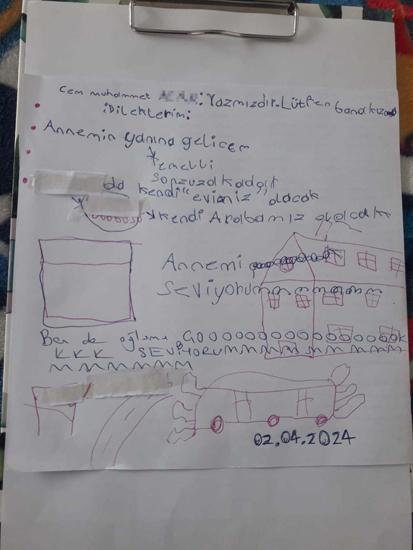 Cem muhammet : Yazmızdır. Lütfen bana kız
Dileklerim:
Annemin yanına gelicem
temelli
sonzuza kadar
da kendi "evimiz" olacak
kendi Arabamız olacak
Annemi
seviyorummmmmmmm
Ben de oğlumu COOOOOOOOOOOOOOOOK
KKKK SEVİYORUMMMMMMMMMMM
MMMMMMM
02.04.2024